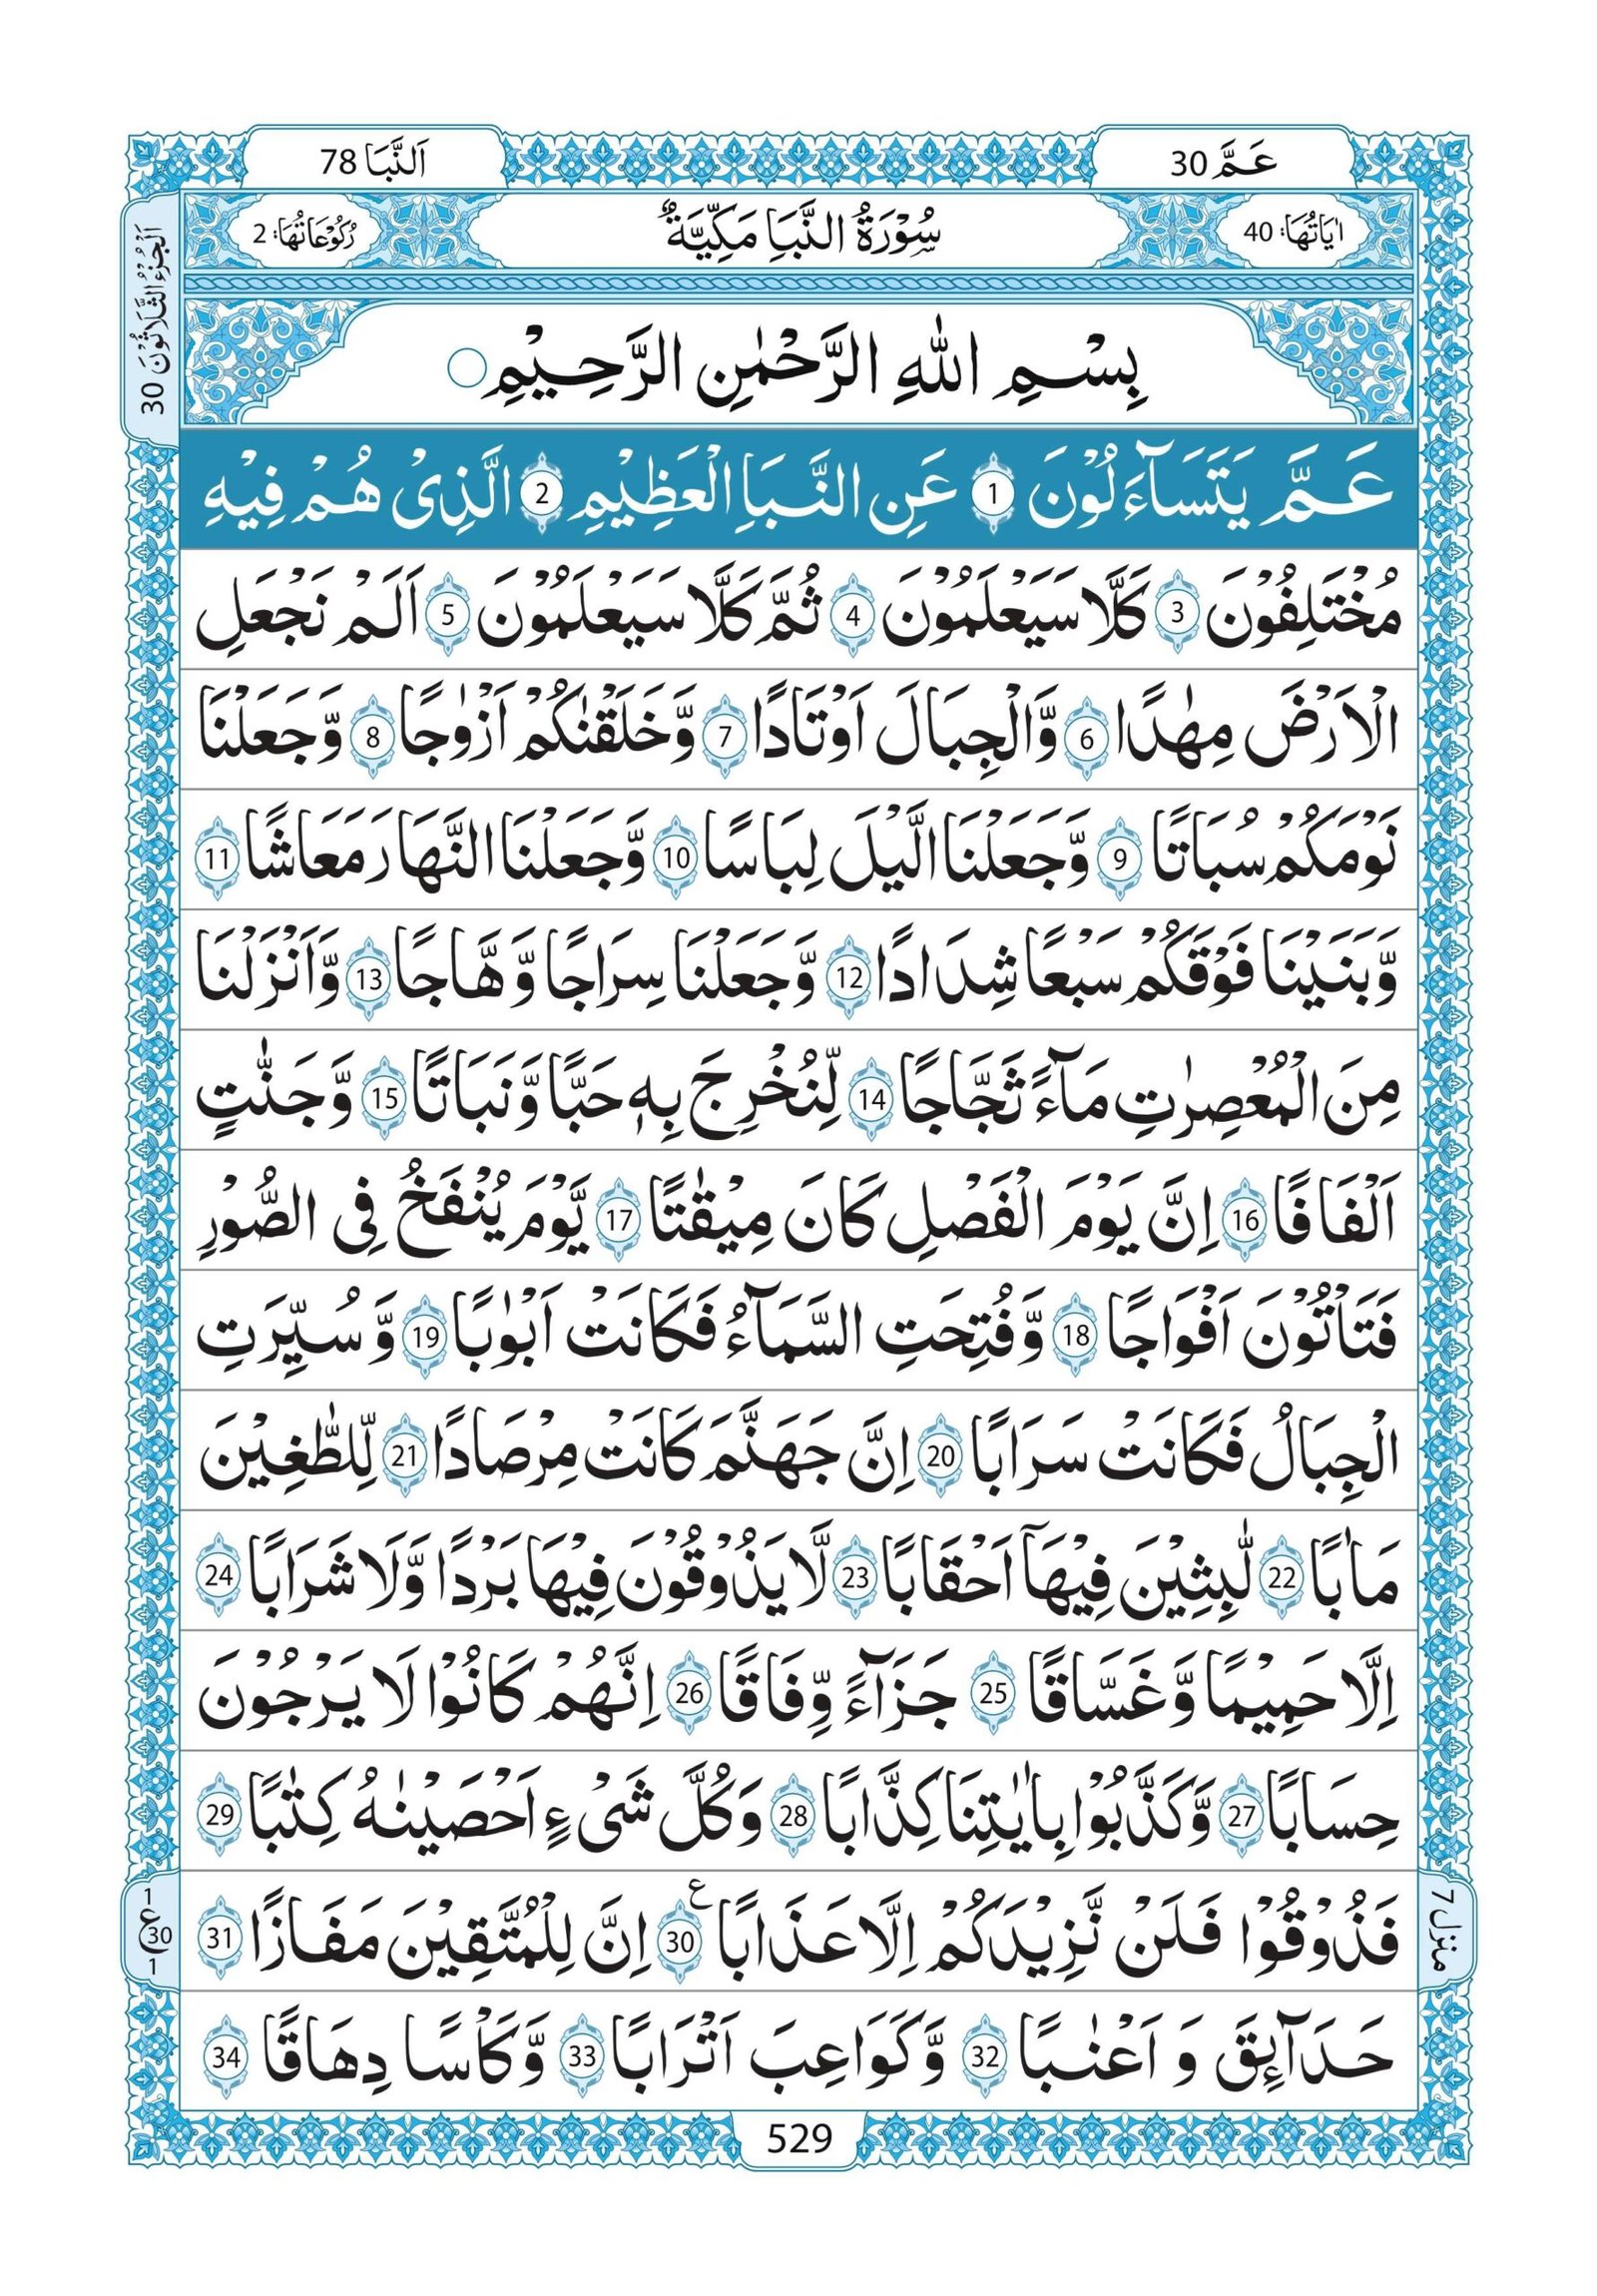 عَمَّ 30
اَلنَّبَا 78
اٰيَاتُهَا: 40
سُوْرَةُ النَّبَاِ مَكِّيَّةٌ
رُكُوْعَاتُهَا: 2
اَلْجُزْءُ الثَّلَاثُوْنَ 30
بِسْمِ اللّٰهِ الرَّحْمٰنِ الرَّحِيْمِ
عَمَّ يَتَسَآءَلُوْنَ 1 عَنِ النَّبَاِ الْعَظِيْمِ 2 الَّذِىْ هُمْ فِيْهِ
مُخْتَلِفُوْنَ 3 كَلَّا سَيَعْلَمُوْنَ 4 ثُمَّ كَلَّا سَيَعْلَمُوْنَ 5 اَلَمْ نَجْعَلِ
الْاَرْضَ مِهٰدًا 6 وَّالْجِبَالَ اَوْتَادًا 7 وَّخَلَقْنٰكُمْ اَزْوٰجًا 8 وَّجَعَلْنَا
نَوْمَكُمْ سُبَاتًا 9 وَّجَعَلْنَا الَّيْلَ لِبَاسًا 10 وَّجَعَلْنَا النَّهَارَ مَعَاشًا 11
وَّبَنَيْنَا فَوْقَكُمْ سَبْعًا شِدَادًا 12 وَّجَعَلْنَا سِرَاجًا وَّهَّاجًا 13 وَّاَنْزَلْنَا
مِنَ الْمُعْصِرٰتِ مَآءً ثَجَّاجًا 14 لِّنُخْرِجَ بِهٖ حَبًّا وَّنَبَاتًا 15 وَّجَنّٰتٍ
اَلْفَافًا 16 اِنَّ يَوْمَ الْفَصْلِ كَانَ مِيْقٰتًا 17 يَّوْمَ يُنْفَخُ فِى الصُّوْرِ
فَتَاْتُوْنَ اَفْوَاجًا 18 وَّفُتِحَتِ السَّمَآءُ فَكَانَتْ اَبْوٰبًا 19 وَّسُيِّرَتِ
الْجِبَالُ فَكَانَتْ سَرَابًا 20 اِنَّ جَهَنَّمَ كَانَتْ مِرْصَادًا 21 لِّلطّٰغِيْنَ
مَاٰبًا 22 لّٰبِثِيْنَ فِيْهَآ اَحْقَابًا 23 لَّا يَذُوْقُوْنَ فِيْهَا بَرْدًا وَّلَا شَرَابًا 24
اِلَّا حَمِيْمًا وَّغَسَّاقًا 25 جَزَآءً وِّفَاقًا 26 اِنَّهُمْ كَانُوْا لَا يَرْجُوْنَ
حِسَابًا 27 وَّكَذَّبُوْا بِاٰيٰتِنَا كِذَّابًا 28 وَكُلَّ شَىْءٍ اَحْصَيْنٰهُ كِتٰبًا 29
فَذُوْقُوْا فَلَنْ نَّزِيْدَكُمْ اِلَّا عَذَابًا ع 30 اِنَّ لِلْمُتَّقِيْنَ مَفَازًا 31
1
ع 30
1
منزل 7
حَدَآئِقَ وَ اَعْنٰبًا 32 وَّكَوَاعِبَ اَتْرَابًا 33 وَّكَاْسًا دِهَاقًا 34
529